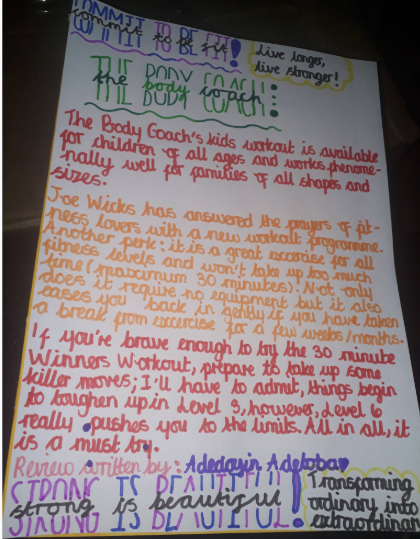 COMMIT TO BE FIT!
commit to be fit
Live longer,
live stronger!
THE BODY COACH:
the body coach
The Body Coach's kids workout is available
for children of all ages and works phenome-
nally well for families of all shapes and
sizes.
Joe Wicks has answered the prayers of fit-
ness lovers with a new workout programme.
Another perk: it is a great excercise for all
fitness levels and won't take up too much
time (maximum 30 minutes)! Not only
does it require no equipment but it also
eases you back in gently if you have taken
a break from excercise for a few weeks/months.
If you're brave enough to try the 30 minute
Winners Workout, prepare to take up some
killer moves; I'll have to admit, things begin
to toughen up in Level 3, however, Level 6
really pushes you to the limits. All in all, it
is a must try.
Review written by: Adedoyin Adetoba
STRONG IS BEAUTIFUL!
strong is beautiful
Transforming
ordinary into
extraordinary